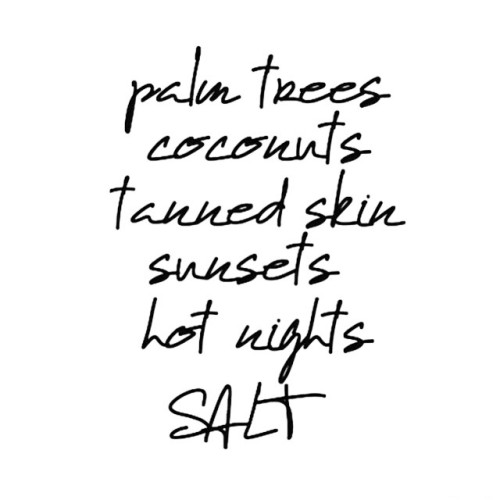 palm trees
coconuts
tanned skin
sunsets
hot nights
SALT